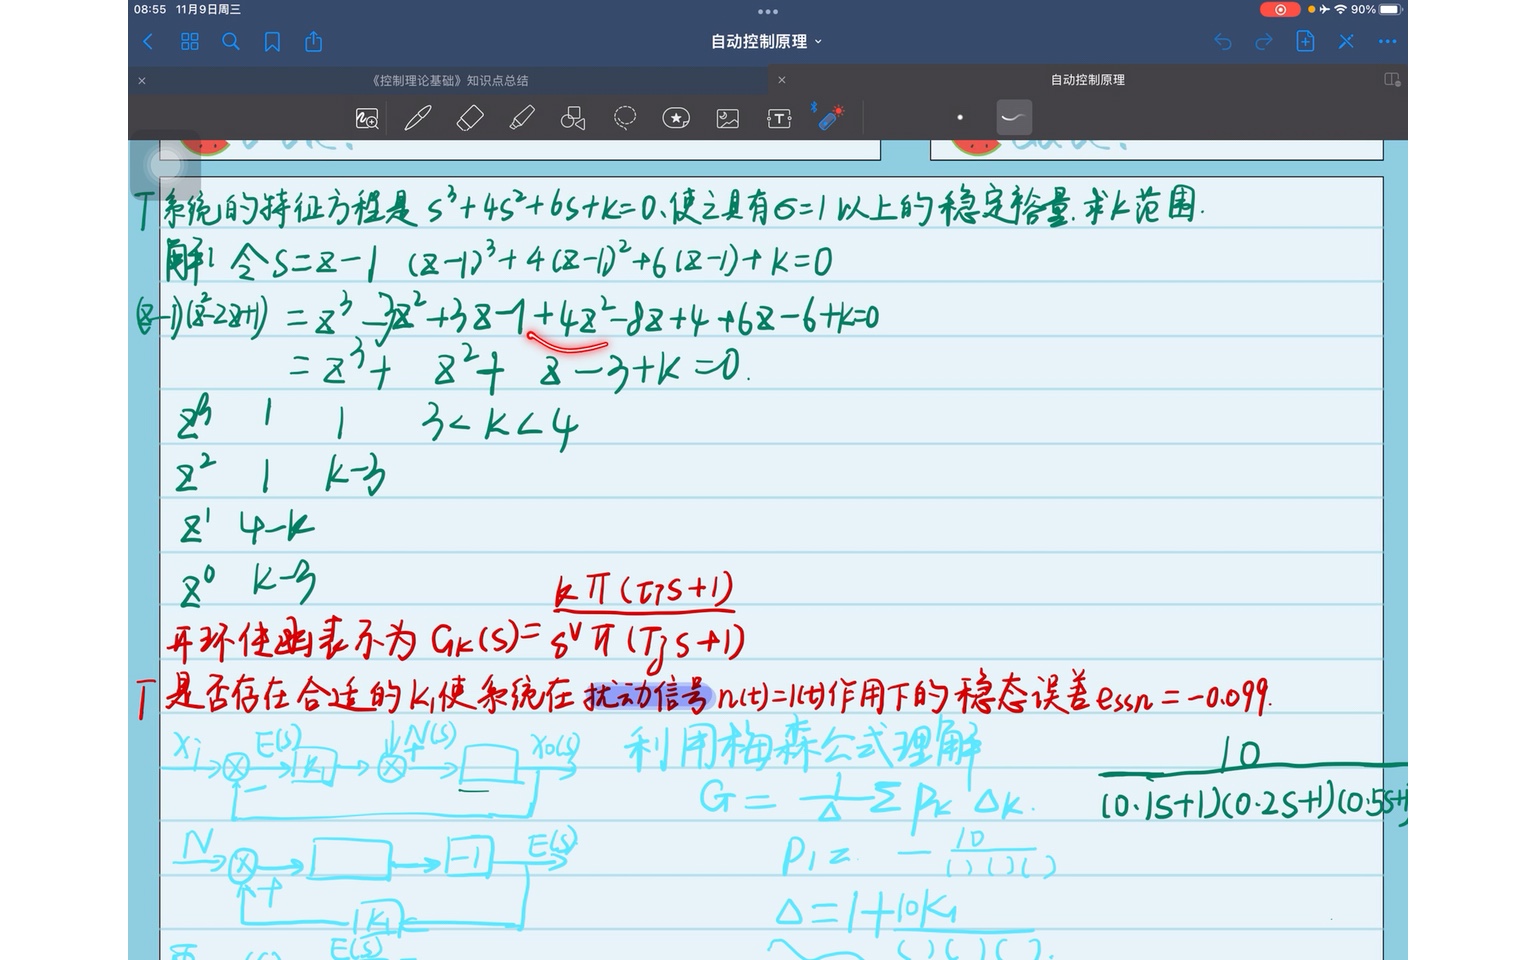 08:55 11月9日周三
90%
自动控制原理
《控制理论基础》知识点总结
自动控制原理
T 系统的特征方程是 s³+4s²+6s+k=0,使之具有σ=1以上的稳定裕量.求k范围.
解: 令s=z-1 (z-1)³+4(z-1)²+6(z-1)+k=0
(z-1)(z²-2z+1) = z³-3z²+3z-1+4z²-8z+4+6z-6+k=0
= z³+ z²+ z-3+k=0.
z³ 1 1 3<k<4
z² 1 k-3
z¹ 4-k
z⁰ k-3
kπ(τis+1)
开环传函表示为 Gk(s)= s^v π(Tjs+1)
T 是否存在合适的k₁使系统在扰动信号n(t)=1(t)作用下的稳态误差essn=-0.099.
Xi E(s) k₁ N(s) + Xo(s) 利用梅森公式理解
-
10
G= 1/Δ Σ Pk Δk.
(0.1s+1)(0.2s+1)(0.5s+1)
N + -1 E(s)
P1= - 10/()()()
k₁
Δ=1+ 10k₁/()()().
E(s)